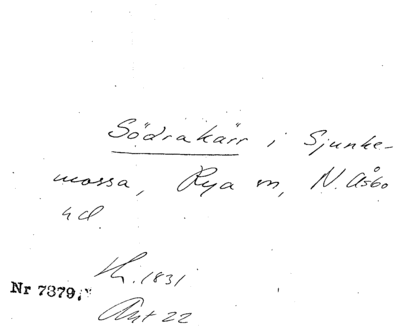 Södrakärr i Sjunke-
mossa, Rya sn, N. Åsbo
hd.
Lh. 1831
Nr 7379,
Ant 22